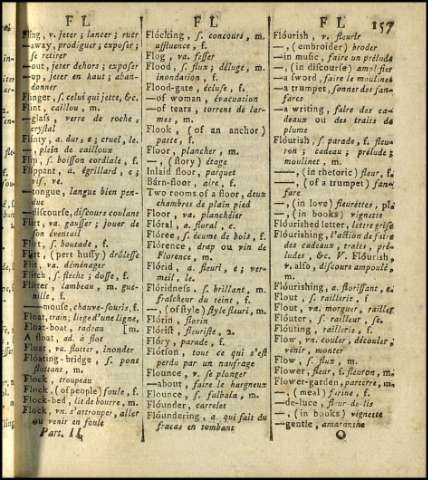 FL
Fling, v. jeter ; lancer ; ruer
—away, prodiguer ; exposer ;
se retirer
—out, jeter dehors ; exposer
—up, jeter en haut ; aban-
donner
Flinger, s. celui qui jette, &c.
Flint, caillou, m.
—glass, verre de roche,
crystal
Flinty, a. dur, e ; cruel, le.
—, plein de cailloux
Flip, s. boisson cordiale, f.
Flippant, a. égrillard, e ;
vif, ve.
—tongue, langue bien pen-
due
—discourse, discours coulant
Flirt, va. gausser ; jouer de
son éventail
Flirt, s. boutade, f.
Flirt, (pert hussy) drôlesse
Flit, va. déménager
Flitch, s. flèche ; dosse, f.
Flitter, lambeau, m. gue-
nille, f.
—mouse, chauve-souris, f.
Float, train ; liege d'une ligne,
Float-boat, radeau [m.
A float, ad. à flot
Float, va. flotter, inonder
Floating-bridge, s. pont
flottant, m.
Flock, troupeau
Flock, (of people) foule, f.
Flock-bed, lit de bourre, m.
Flock, vn. s'attrouper, aller
ou venir en foule
Part. II.
FL
Flócking, s. concours, m.
affluence, f.
Flog, va. fesser
Flood, s. flux ; déluge, m.
inondation, f.
Flood-gate, écluse, f.
—of woman, évacuation
—of tears, torrent de lar-
mes, m.
Flook, (of an anchor)
patte, f.
Floor, plancher, m.
—, (story) étage
Inlaid floor, parquet
Bárn-floor, aire, f.
Two rooms of a floor, deux
chambres de plain pied
Floor, va. planchéier
Flóral, a. floral, e.
Flóren, s. écume de bois, f.
Flórence, drap ou vin de
Florence, m.
Flórid, a. fleuri, e ; ver-
meil, le.
Flóridness, s. brillant, m.
fraîcheur du teint, f.
—, (of style) style fleuri, m.
Flórin, florin
Flórist, fleuriste, 2.
Flóry, parade, f.
Flótson, tous ce qui s'est
perdu par un naufrage
Flounce, v. se plonger
—about, faire le hargneux
Flounce, s. falbala, m.
Flóunder, carrelet
Flóundering, a. qui fait du
fracas en tombant
FL
157
Flóurish, v. fleurir
—, (embroider) broder
—in music, faire un prélude
—, (in discourse) amplifier
—a sword, faire le moulinet
—a trumpet, sonner des fan-
fares
—a writing, faire des ca-
deaux ou des traits de
plume
Flóurish, s. parade, f. fleu-
ron ; cadeau ; prélude ;
moulinet, m.
—, (in rhetoric) fleur, f.
—, (of a trumpet) fan-
fare
—, (in love) fleurettes, pl.
—, (in books) vignette
Flóurished letter, lettre grise
Flóurishing, l'action de faire
des cadeaux, traits, pré-
ludes, &c. V. Flóurish,
v. also, discours ampoulé,
m.
Flóurishing, a. florissant, e.
Flout, s. raillerie, f.
Flout, va. morguer, railler
Flóuter, s. railleur, se.
Flóuting, raillerie, f.
Flow, vn. couler, découler,
venir, monter
Flow, s. flux, m.
Flower, fleur, f. fleuron, m.
Flower-garden, parterre, m.
—, (meal) farine, f.
—de-luce, fleur-de-lis
—, (in books) vignette
—gentle, amaranthe
O